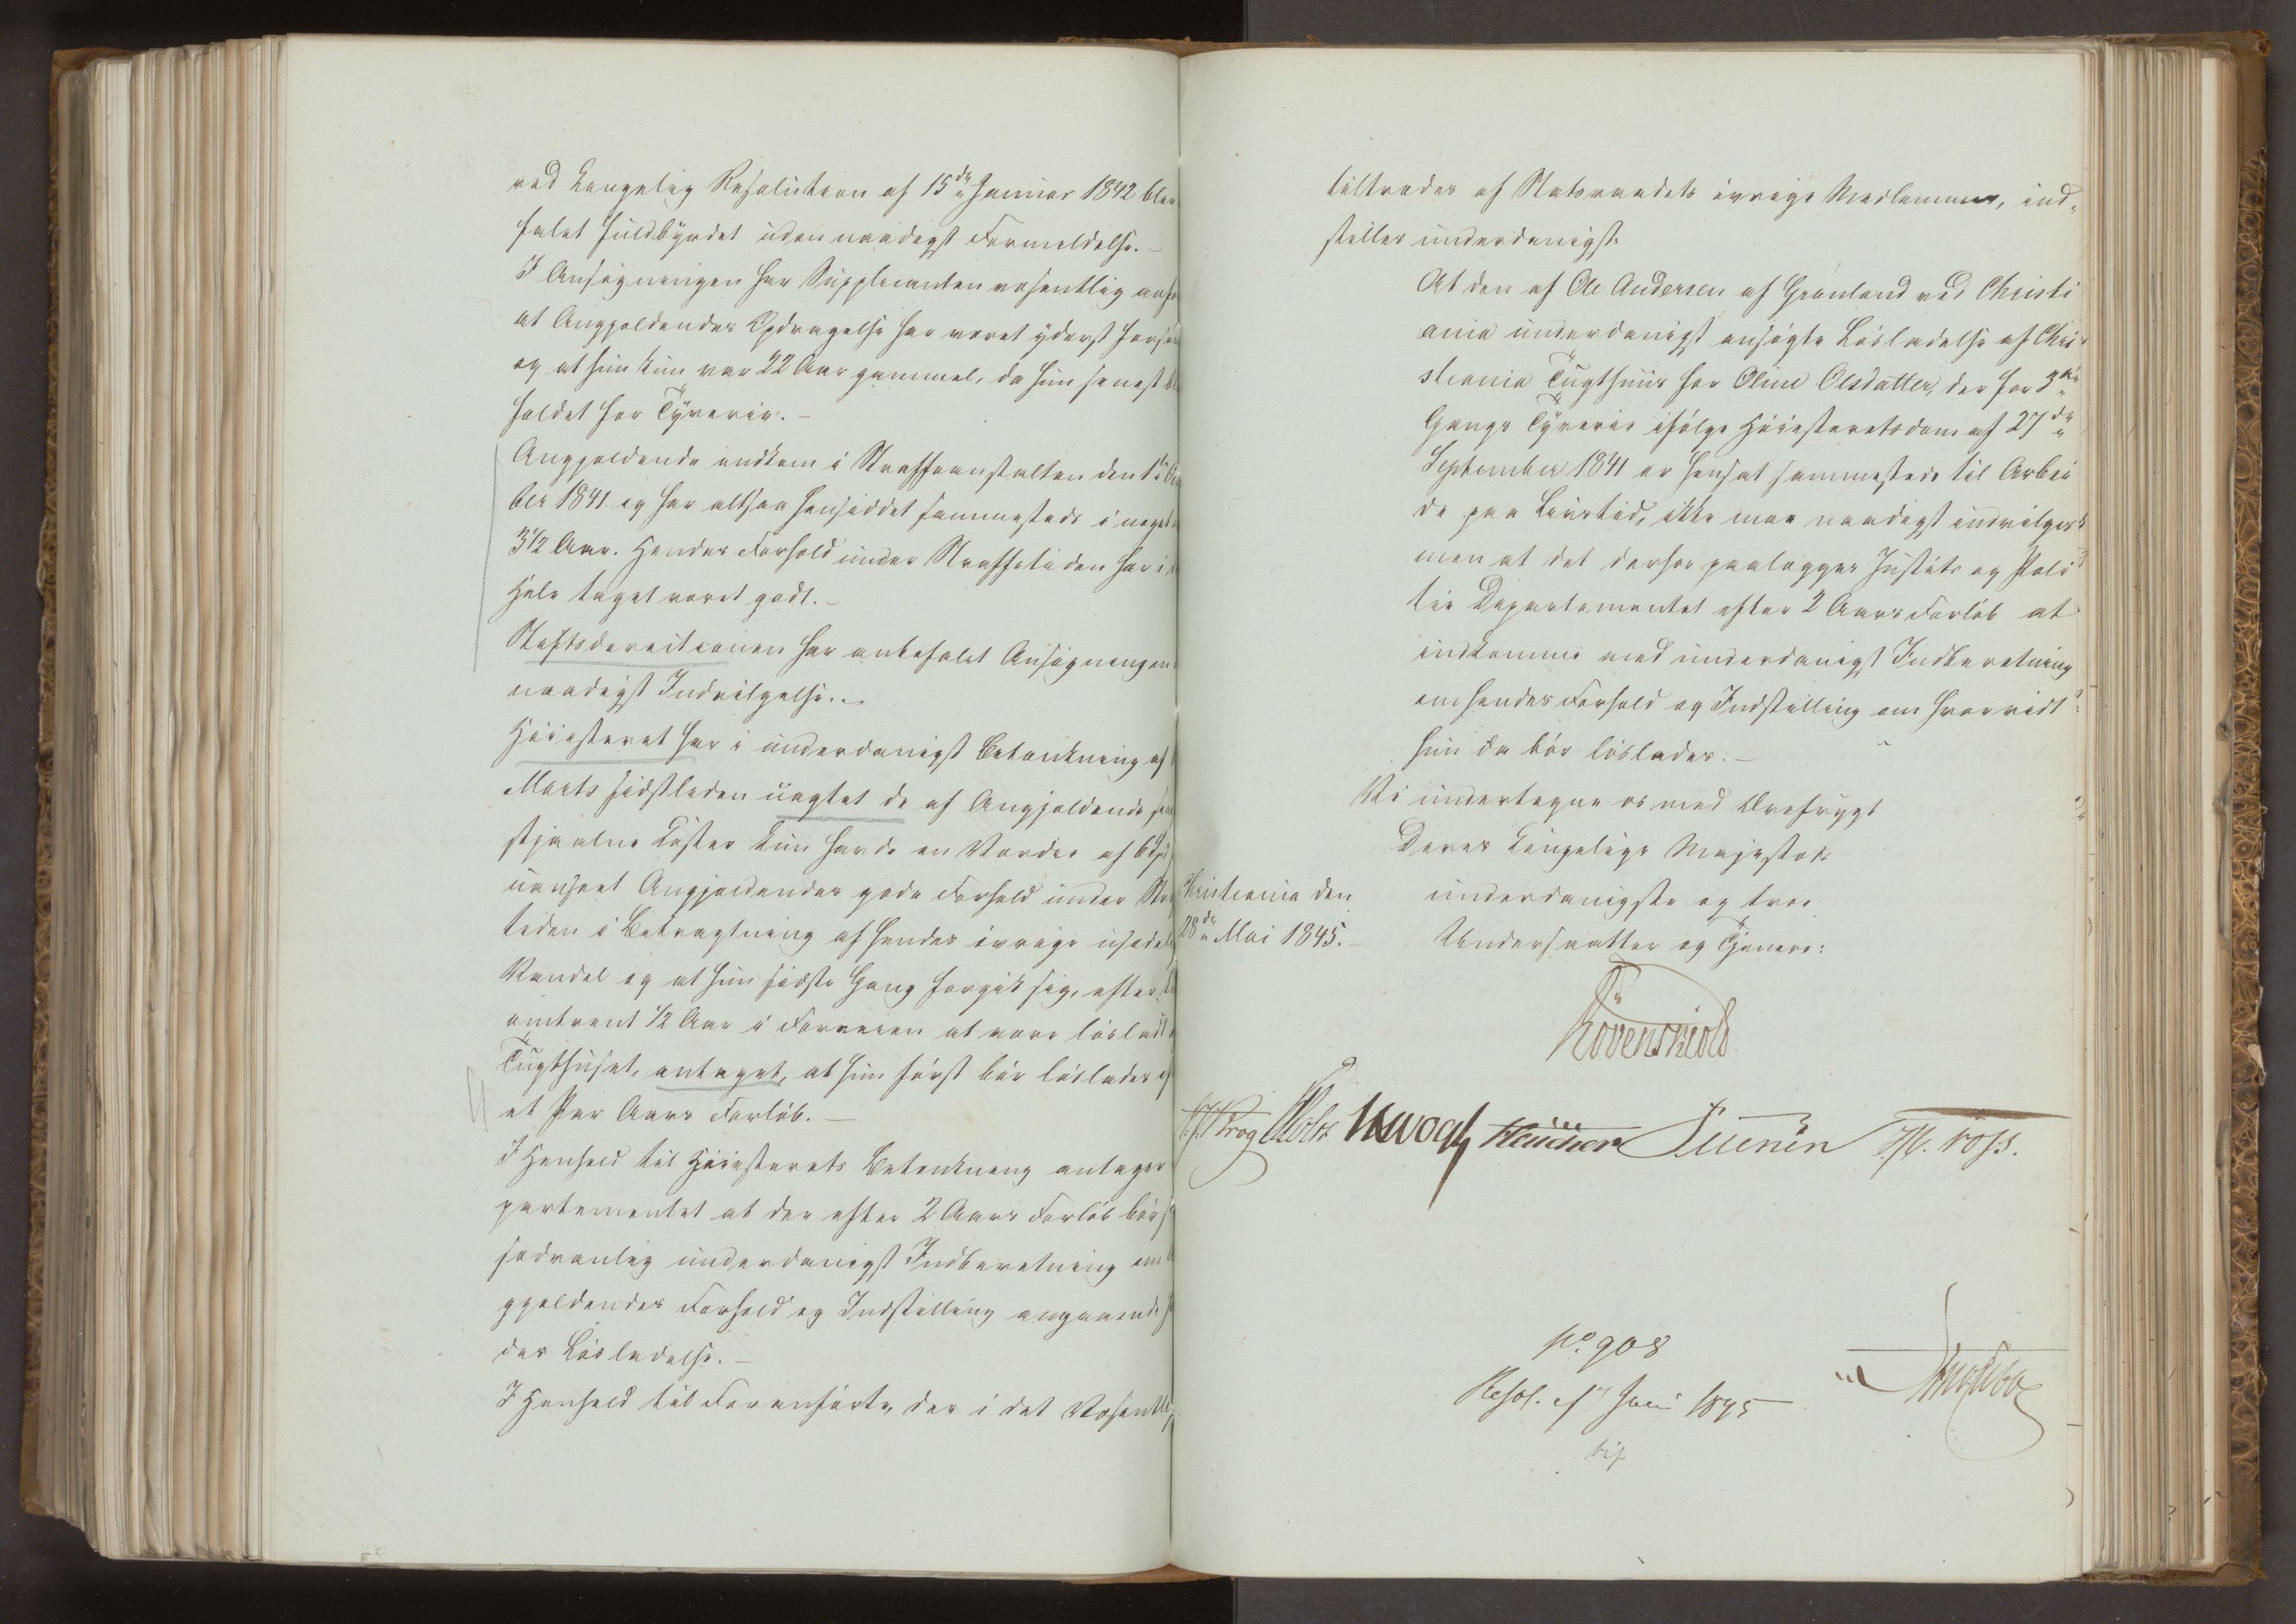 ved Kongelig Resolution af 15de Januar 1842 blev
falet fuldbyrdet uden naadigst Formildelse.-
I Ansøgningen har Supplicanten væsentlig anfø
at Angjældendes Opdragelse har været yderst forsø
og at hun kun var 22 Aar gammel, da hun senest bl
faldet for Tyverie.-
Angjældende indkom i Straffeanstalten den 1ste
ber 1841 og har altsaa hensiddet sammesteds i noget
3 1/2 Aar. Hendes Forhold under Straffetiden har i
Hele taget været godt.-
Stiftsdirectionen har anbefalet Ansøgningen
naadigst Indvilgelse.-
Høiesteret har i underdanigst Betænkning af
Marts sidstleden uagtet de af Angjældende
stjaalne Koster kun havde en Værdie af 6
uanseet Angjældendes gode Forhold under Str
tiden i Betragtning af hendes øvrige usædel
Vandel og at hun sidste Gang forgik sig, efter
omtrent 1/2 Aar i Forveien at være løsladt
Tugthuset, antaget, at hun først bør løslades ef
et Par Aars Forløb.-
I Henhold til Høiesterets Betænkning antager
partementet at der efter 2 Aars Forløb bør
sædvanlig underdanigst Indberetning om
gjældendes Forhold og Indstilling angaaende
des Løsladelse.-
I Henhold til Foranførte, der i det Væsentli
tiltrædes af Statsraadets øvrige Medlemmer, ind-
stilles underdanigst:
At den af Ole Andersen af Grønland ved Christi
ania underdanigst ansøgte Løsladelse af Chri-
stiania Tugthuus for Oline Olsdatter, der for 3die
Gangs Tyverie ifølge Høiesteretsdom af 27de
September 1841 er hensat sammesteds til Arbei
de paa Livstid, ikke maa naadigst indvilges
men at det derfor paalægges Justits og Poli
tie Departementet efter 2 Aars Forløb at
indkomme med underdanigst Indberetning
om hendes Forhold og Indstilling om hvorvidt
hun da bør løslades.-
Vi undertegne os med Ærefrygt
Deres Kongelige Majestæts
Christiania den
28de Mai 1845.-
underdanigste og troe
Undersaatter og Tjenere:
Løvenskiold
Krog Holst Vogt Suenen Foss.
No 908
Resol. af 7 Juni 1845